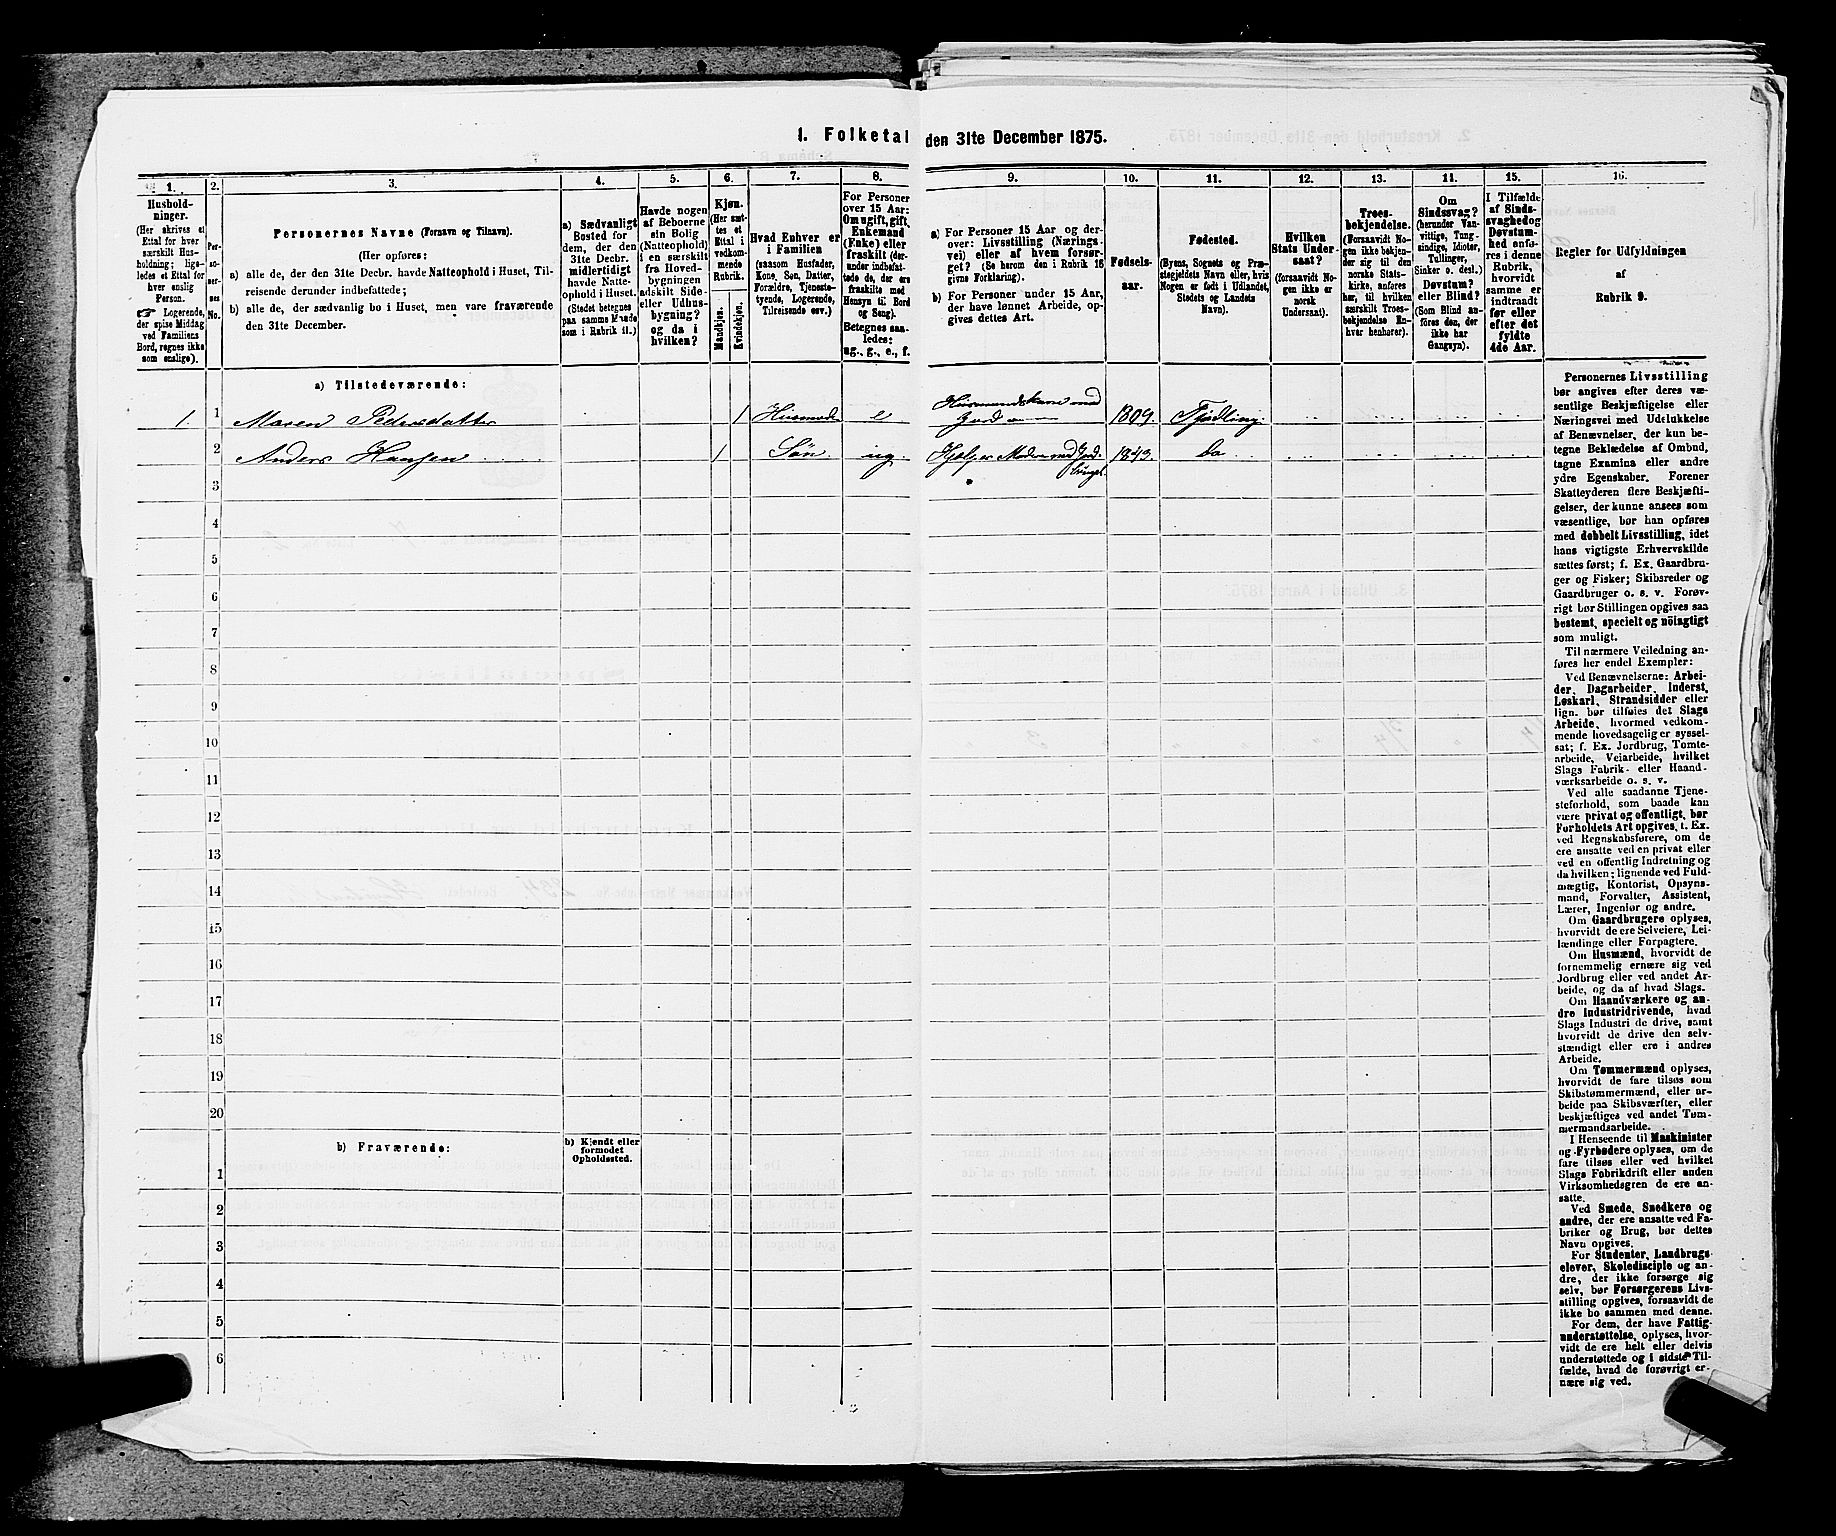 1. Folketal den 31te December 1875.
1.
2.
3.
4.
5.
6.
7.
8.
9.
10.
11.
12.
13.
11.
15.
16.
Hushold-
ninger.
(Her skrives et
Ettal for hver
særskilt Hus-
holdning; lige-
ledes et Ettal for
hver enslig
Person.
☞ Logerende,
der spise Middag
ved Familiens
Bord, regnes ikke
som enslige).
Per-
so-
ner-
nes
No.
Personernes Navne (Fornavn og Tilnavn).
(Her opføres:
a) alle de, der den 31te Decbr. havde Natteophold i Huset, Til-
reisende derunder indbefattede;
b) alle de, der sædvanlig bo i Huset, men vare fraværende
den 31te December.
a) Sædvanligt
Bosted for
dem, der den
31te Decbr.
midlertidigt
havde Natte-
ophold i Huset.
(Stedet betegnes
paa samme Maade
som i Rubrik 11.)
Havde nogen
af Beboerne
sin Bolig
(Natteophold)
i en særskilt
fra Hoved-
bygningen
adskilt Side-
eller Udhus-
bygning?
og da i
hvilken?
Kjøn.
(Her sæt-
tes et
Ettal i
vedkom-
mende
Rubrik.
Mandkjøn.
Kvindekjøn.
Hvad Enhver er
i Familien
(saasom Husfader,
Kone, Søn, Datter,
Forældre, Tjeneste-
tyende, Logerende,
Tilreisende osv.)
For Personer
over 15 Aar:
Om ugift, gift,
Enkemand
(Enke) eller
fraskilt (der-
under indbefat-
tede de, der ere
fraskilte med
Hensyn til Bord
og Seng).
Betegnes saa-
ledes:
ug., g., e., f.
a) For Personer 15 Aar og der-
over: Livsstilling (Nærings-
vei) eller af hvem forsør-
get? (Se herom den i Rubrik 16
givne Forklaring).
b) For Personer under 15 Aar,
der have lønnet Arbeide, op-
gives dettes Art.
Fødsels-
aar.
Fødested.
(Byens, Sognets og Præ-
stegjeldets Navn eller, hvis
Nogen er født i Udlandet,
Stedets og Landets
Navn).
Hvilken
Stats Under-
saat?
(forsaavidt No-
gen ikke er
norsk
Undersaat).
Troes-
bekjendelse.
(Forsaavidt No-
gen ikke bekjen-
der sig til den
norske Stats-
kirke, anføres
her, til hvilken
særskilt Troes-
bekjendelse En-
hver henhører).
Om
Sindssvag?
(herunder Van-
vittige, Tung-
sindige, Idioter,
Tullinger,
Sinker o. desl.)
Døvstum?
eller Blind?
(Som Blind an-
føres den, der
ikke har
Gangsyn).
I Tilfælde
af Sinds-
svaghed og
Døvstum-
hed anfø-
res i denne
Rubrik,
hvorvidt
samme er
indtraadt
før eller
efter det
fyldte
4de Aar.
Regler for Udfyldningen
af
Rubrik 9.
a) Tilstedeværende:
1. 1 Maren Pedersdatter 1 Husmoder e Husmandskone med Jord 1809. Fjødling
2 Anders Hansen 1 Søn ug. Hjælper Moderen med Jord- 1843. Do
bruget
3
4
5
6
7
8
9
10
11
12
13
14
15
16
17
18
19
20
b) Fraværende:
b) Kjendt eller
formodet
Opholdssted.
1
2
3
4
5
6
Personernes Livsstilling
bør angives efter deres væ-
sentlige Beskjæftigelse eller
Næringsvei med Udelukkelse
af Benævnelser, der kun be-
tegne Beklædelse af Ombud,
tagne Examina eller andre
ydre Egenskaber. Forener
Skatteyderen flere Beskjæfti-
gelser, der kunne ansees som
væsentlige, bør han opføres
med dobbelt Livsstilling, idet
hans vigtigste Erhvervskilde
sættes først; f. Ex. Gaardbru-
ger og Fisker; Skibsreder og
Gaardbruger o. s. v. Forøv-
rigt bør Stillingen opgives saa
bestemt, specielt og nöiagtigt
som muligt.
Til nærmere Veiledning an-
føres her endel Exempler:
Ved Benævnelserne: Arbei-
der, Dagarbeider, Inderst,
Løskarl, Strandsidder eller
lign. bør tilføies det Slags
Arbeide, hvormed vedkom-
mende hovedsagelig er syssel-
sat; f. Ex. Jordbrug, Tomte-
arbeide, Veiarbeide, hvilket
Slags Fabrik- eller Haand-
værksarbeide o. s. v.
Ved alle saadanne Tjene-
steforhold, som baade kan
være privat og offentligt, bør
Forholdets Art opgives, t. Ex.
ved Regnskabsførere, om de
ere ansatte ved en privat eller
ved en offentlig Indretning og
da hvilken; lignende ved Fuld-
mægtig, Kontorist, Opsyns-
mand, Forvalter, Assistent,
Lærer, Ingeniør og andre.
Om Gaardbrugere oplyses,
hvorvidt de ere Selveiere, Lei-
lændinge eller Forpagtere.
Om Husmænd, hvorvidt de
fornemmelig ernære sig ved
Jordbrug eller ved andet Ar-
beide, og da af hvad Slags.
Om Haandværkere og an-
dre Industridrivende, hvad
Slags Industri de drive, samt
hvorvidt de drive den selv-
stændigt eller ere i andres
Arbeide.
Om Tømmermænd oplyses,
hvorvidt de fare tilsøs som
Skibstømmermænd, eller ar-
beide paa Skibsværfter, eller
beskjæftiges ved andet Tøm-
mermandsarbeide.
I Henseende til Maskinister
og Fyrbødere oplyses, om de
fare tilsøs eller ved hvilket
Slags Fabrikdrift eller anden
Virksomhedsgren de ere an-
satte.
Ved Smede, Snedkere og
andre, der ere ansatte ved Fa-
briker og Brug, bør dettes
Navn opgives.
For Studenter, Landbrugs-
elever, Skoledisciple og an-
dre, der ikke forsørge sig
selv, bør Forsørgerens Livs-
stilling opgives, forsaavidt de
ikke bo sammen med denne.
For dem, der have Fattig-
understøttelse, oplyses, hvor-
vidt de ere helt eller delvis
understøttede og i sidste Til-
fælde, hvad de forøvrigt er-
nære sig ved.